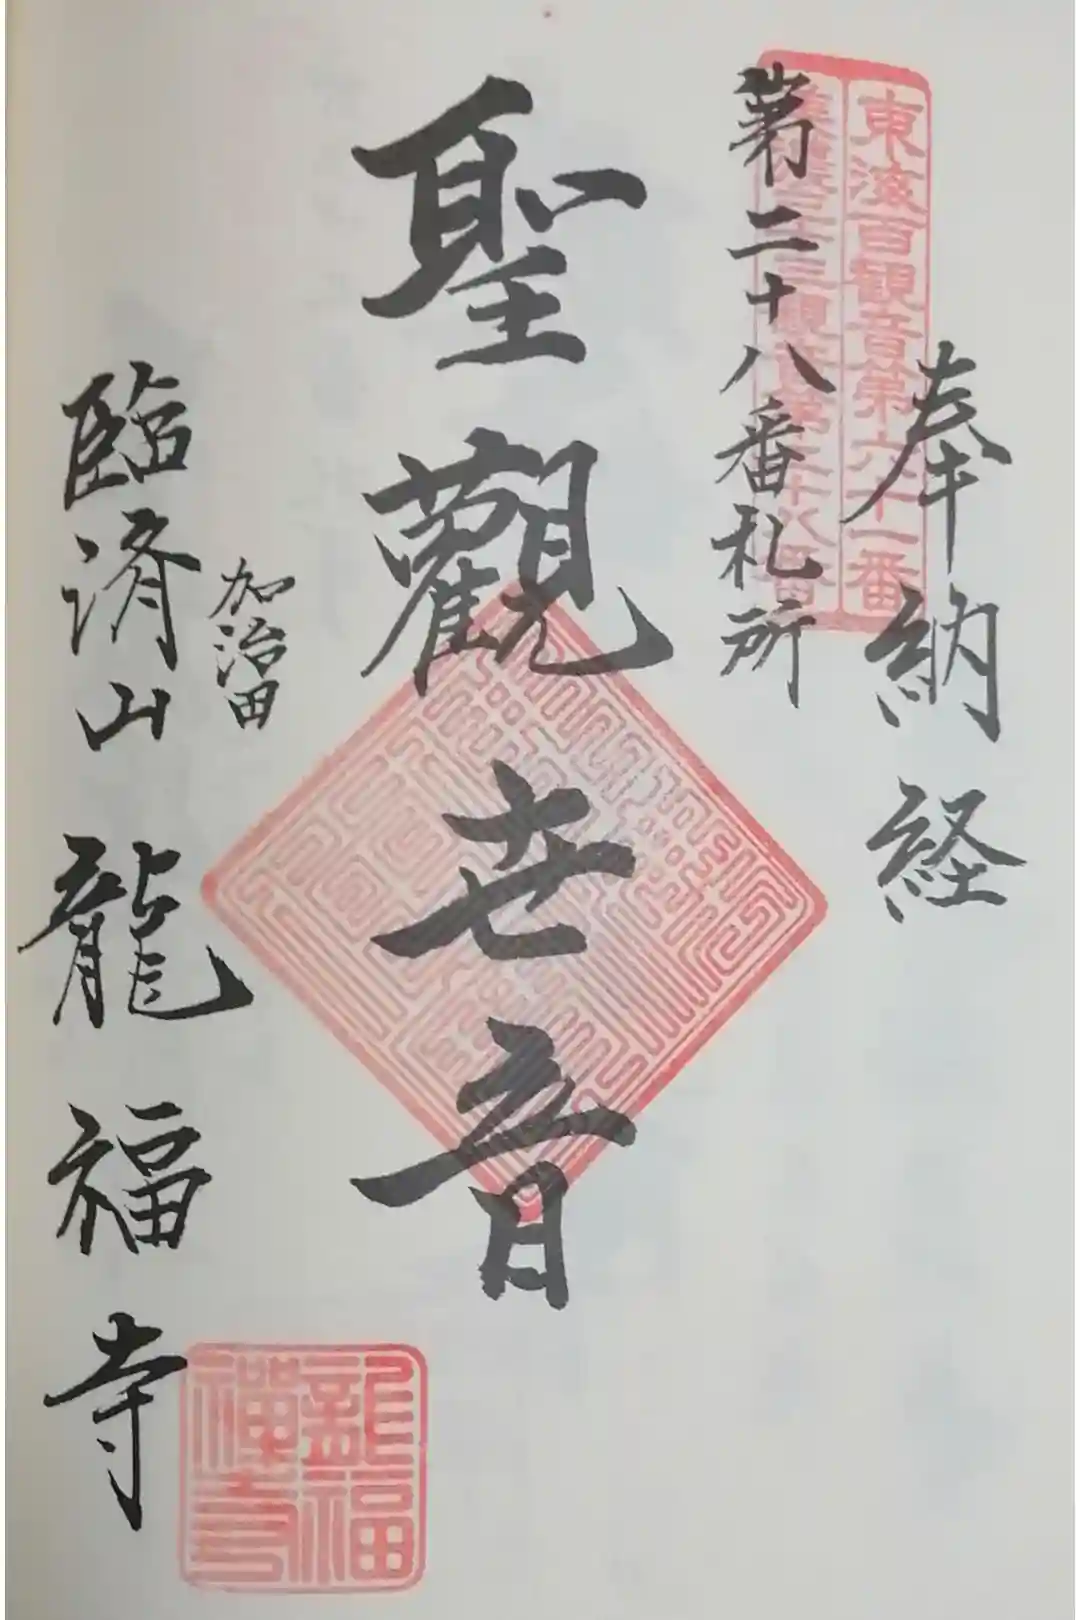 奉納経
東海百観音第六十一番
三觀音第二十八番
第二十八番札所
聖觀世音
加治田
臨済山龍福寺
龍福
禪寺